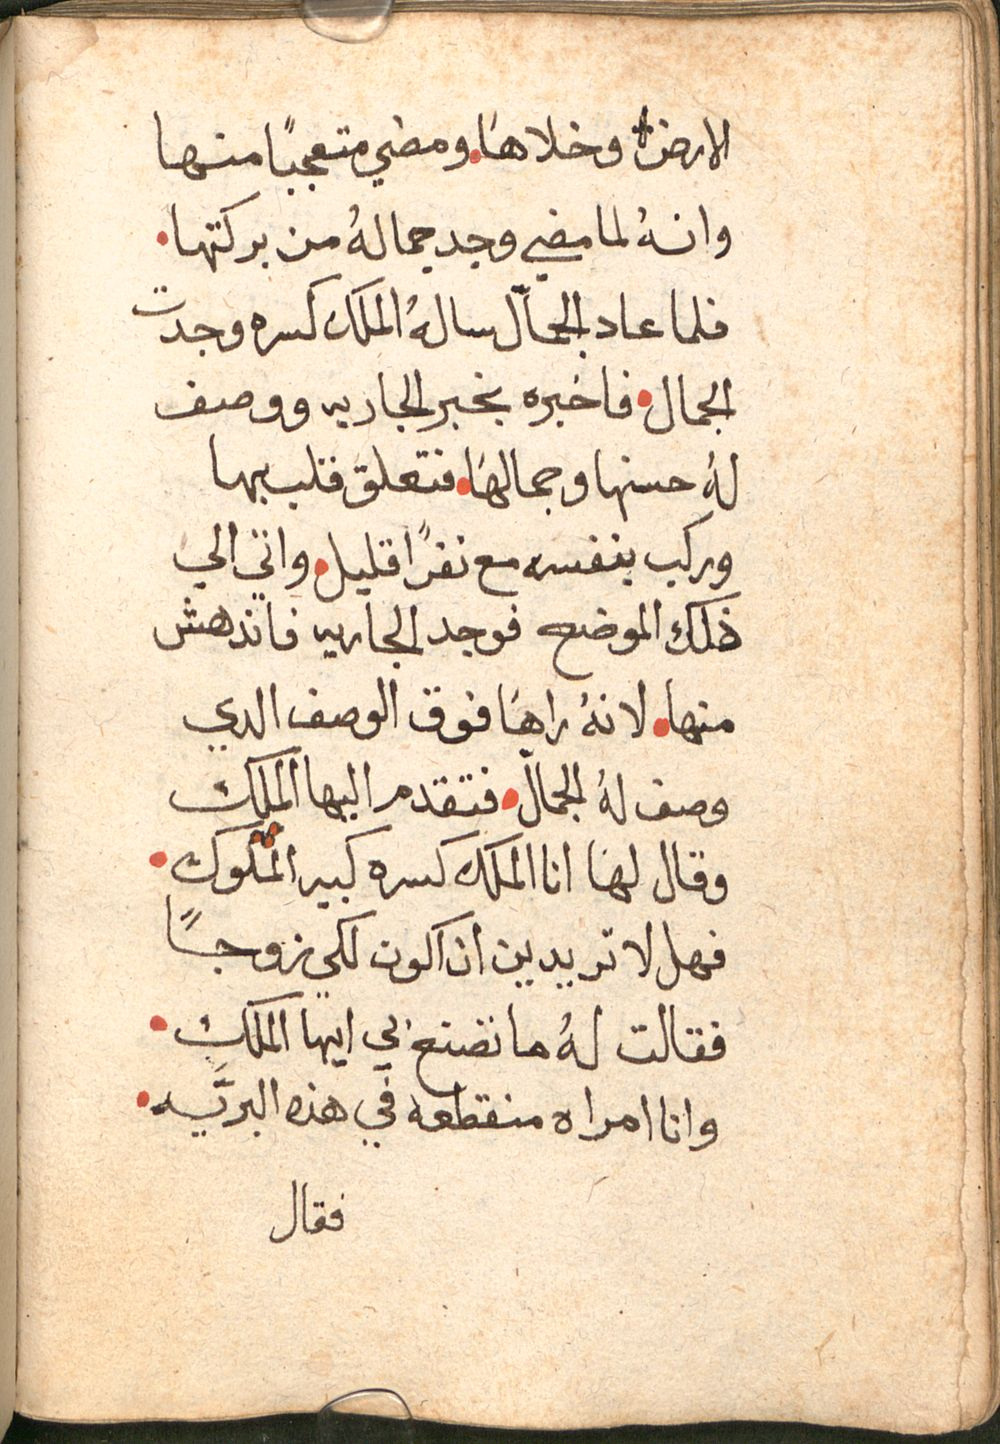 الارض وخلاهَا. ومضي متعجبًا منها
وانهُ لما مضي وجد جمالهُ من بركتها.
فلما عاد الجمّال سالهُ الملك كسره وجدت
الجمال. فاخبره بخبر الجاريه ووصف
لهُ حسنها وجمالهَا. فتعلق قلبه بها
وركب بنفسه مع نفرًا قليل. واتي الي
ذلك الموضع فوجد الجاريه فاندهش
منها. لانهُ راهَا فوق الوصف الدي
وصف لهُ الجمّال. فتقدم اليها الملك
وقال لهَا انا الملك كسره كبير الملوك.
فهل لا تريدين ان اكون لكي زوجًا
فقالت لهُ ما تصنع بي ايها الملك.
وانا امراه منقطعه في هذه البريّه.
فقال